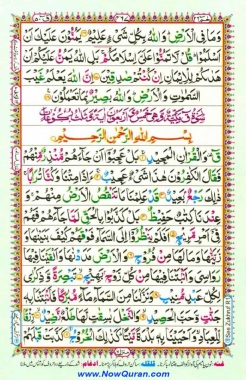 وَمَا فِى الْاَرْضِ وَاللّٰهُ بِكُلِّ شَىْءٍ عَلِيْمٌ يَمُنُّوْنَ عَلَيْكَ اَنْ
اَسْلَمُوْا قُلْ لَّا تَمُنُّوْا عَلَىَّ اِسْلَامَكُمْ بَلِ اللّٰهُ يَمُنُّ عَلَيْكُمْ اَنْ
هَدٰىكُمْ لِلْاِيْمَانِ اِنْ كُنْتُمْ صٰدِقِيْنَ اِنَّ اللّٰهَ يَعْلَمُ غَيْبَ
السَّمٰوٰتِ وَالْاَرْضِ وَاللّٰهُ بَصِيْرٌ بِمَا تَعْمَلُوْنَ
بِسْمِ اللّٰهِ الرَّحْمٰنِ الرَّحِيْمِ
قٓ وَالْقُرْاٰنِ الْمَجِيْدِ بَلْ عَجِبُوْا اَنْ جَآءَهُمْ مُّنْذِرٌ مِّنْهُمْ
فَقَالَ الْكٰفِرُوْنَ هٰذَا شَىْءٌ عَجِيْبٌ ءَاِذَا مِتْنَا وَكُنَّا تُرَابًا
ذٰلِكَ رَجْعٌ بَعِيْدٌ قَدْ عَلِمْنَا مَا تَنْقُصُ الْاَرْضُ مِنْهُمْ وَ
عِنْدَنَا كِتٰبٌ حَفِيْظٌ بَلْ كَذَّبُوْا بِالْحَقِّ لَمَّا جَآءَهُمْ فَهُمْ
فِىْٓ اَمْرٍ مَّرِيْجٍ اَفَلَمْ يَنْظُرُوْٓا اِلَى السَّمَآءِ فَوْقَهُمْ كَيْفَ بَنَيْنٰهَا وَ
زَيَّنّٰهَا وَمَا لَهَا مِنْ فُرُوْجٍ وَالْاَرْضَ مَدَدْنٰهَا وَاَلْقَيْنَا فِيْهَا
رَوَاسِىَ وَاَنْبَتْنَا فِيْهَا مِنْ كُلِّ زَوْجٍ بَهِيْجٍ تَبْصِرَةً وَّذِكْرٰى
لِكُلِّ عَبْدٍ مُّنِيْبٍ وَنَزَّلْنَا مِنَ السَّمَآءِ مَآءً مُّبٰرَكًا فَاَنْبَتْنَا بِهٖ
جَنّٰتٍ وَّحَبَّ الْحَصِيْدِ وَالنَّخْلَ بٰسِقٰتٍ لَّهَا طَلْعٌ نَّضِيْدٌ رِّزْقًا
لِّلْعِبَادِ وَاَحْيَيْنَا بِهٖ بَلْدَةً مَّيْتًا كَذٰلِكَ الْخُرُوْجُ كَذَّبَتْ قَبْلَ
www.NowQuran.com